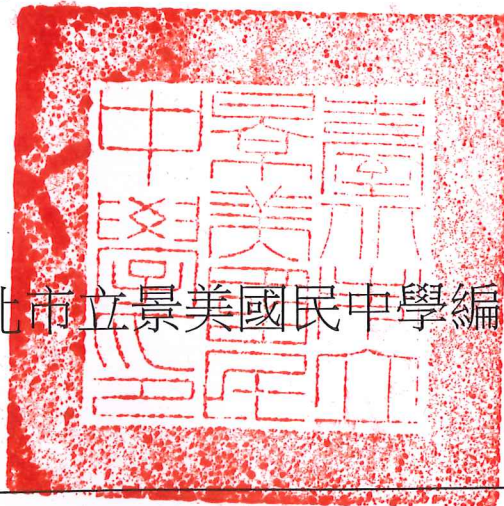 臺北市立
景美國民
中學印
北市立景美國民中學編